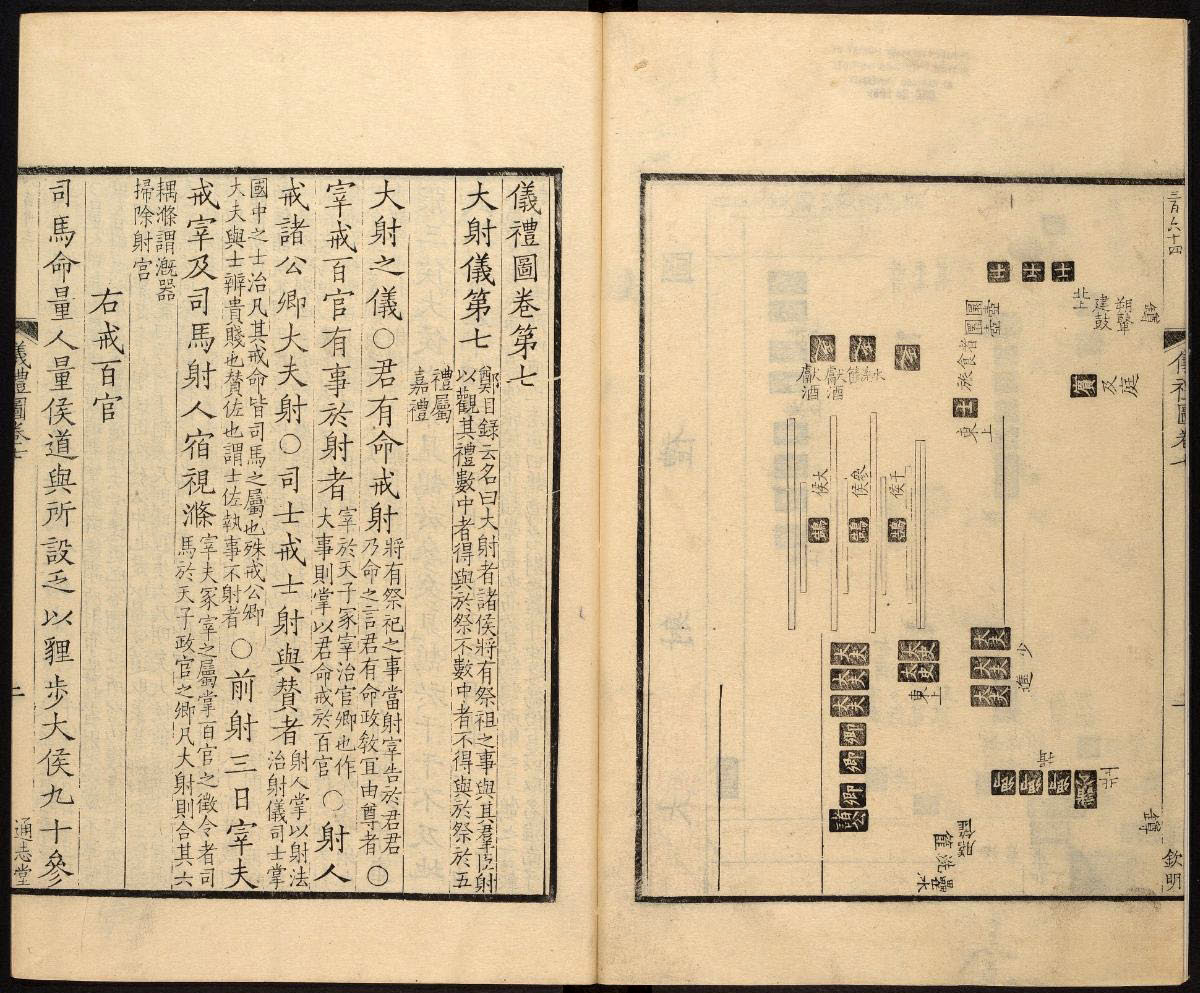 三百六十四
儀禮圖卷七
一
欽明
及庭
賓
朔鼙
建鼓
北上
士
士
士
圜壺
圜壺
旅食者
士
東上
獻酒
獻酒
大侯
參侯
干侯
大夫
大夫
大夫
少進
東上
大夫
大夫
大夫
卿
卿
卿
卿
卿
北上
洗
水
儀禮圖卷第七
大射儀第七
鄭目錄云名曰大射者諸侯將有祭祖之事與其羣臣射
以觀其禮數中者得與於祭不數中者不得與於祭於五
禮屬
嘉禮
大射之儀○君有命戒射
將有祭祀之事當射宰告於君君
乃命之言君有命政敎宜由尊者
○
宰戒百官有事於射者
宰於天子冢宰治官卿也作
大事則掌以君命戒於百官
○射人
戒諸公卿大夫射○司士戒士射與贊者
射人掌以射法
治射儀司士掌
國中之士治凡其戒命皆司馬之屬也殊戒公卿
大夫與士辨貴賤也贊佐也謂士佐執事不射者
○前射三日宰夫
戒宰及司馬射人宿視滌
宰夫冢宰之屬掌百官之徵令者司
馬於天子政官之卿凡大射則合其六
耦滌謂溉器
掃除射宮
右戒百官
司馬命量人量侯道與所設乏以貍步大侯九十參
儀禮圖卷七
二
通志堂